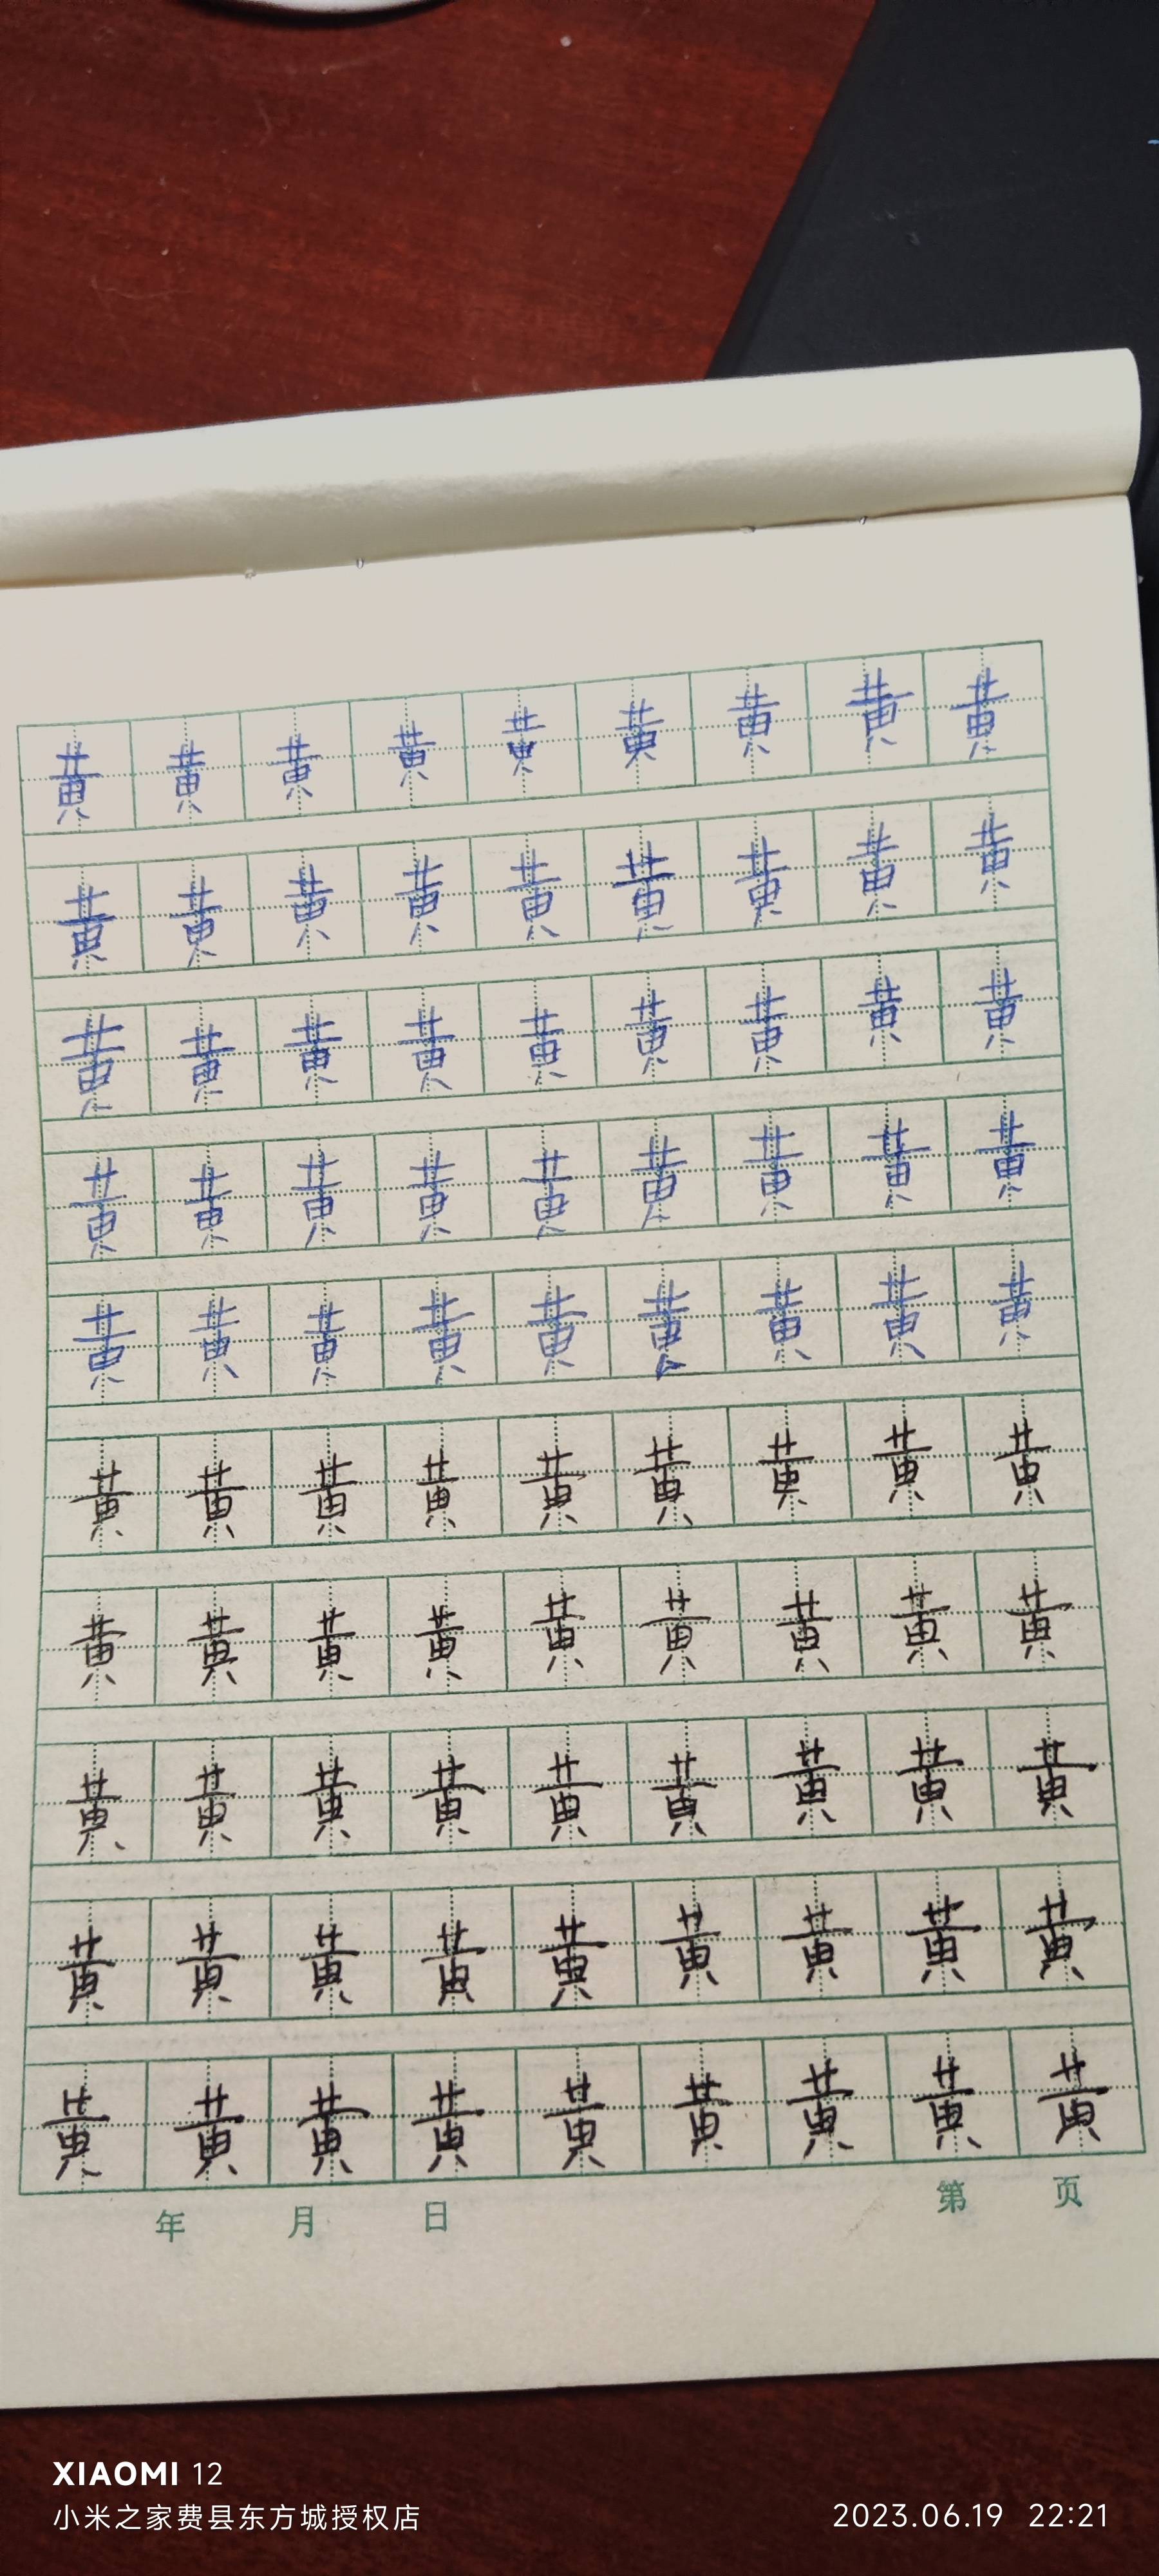 黄 黄 黄 黄 黄 黄 黄 黄 黄
黄 黄 黄 黄 黄 黄 黄 黄 黄
黄 黄 黄 黄 黄 黄 黄 黄 黄
黄 黄 黄 黄 黄 黄 黄 黄 黄
黄 黄 黄 黄 黄 黄 黄 黄 黄
黄 黄 黄 黄 黄 黄 黄 黄 黄
黄 黄 黄 黄 黄 黄 黄 黄 黄
黄 黄 黄 黄 黄 黄 黄 黄 黄
黄 黄 黄 黄 黄 黄 黄 黄 黄
黄 黄 黄 黄 黄 黄 黄 黄 黄
年 月 日 第 页
XIAOMI 12
小米之家费县东方城授权店 2023.06.19 22:21